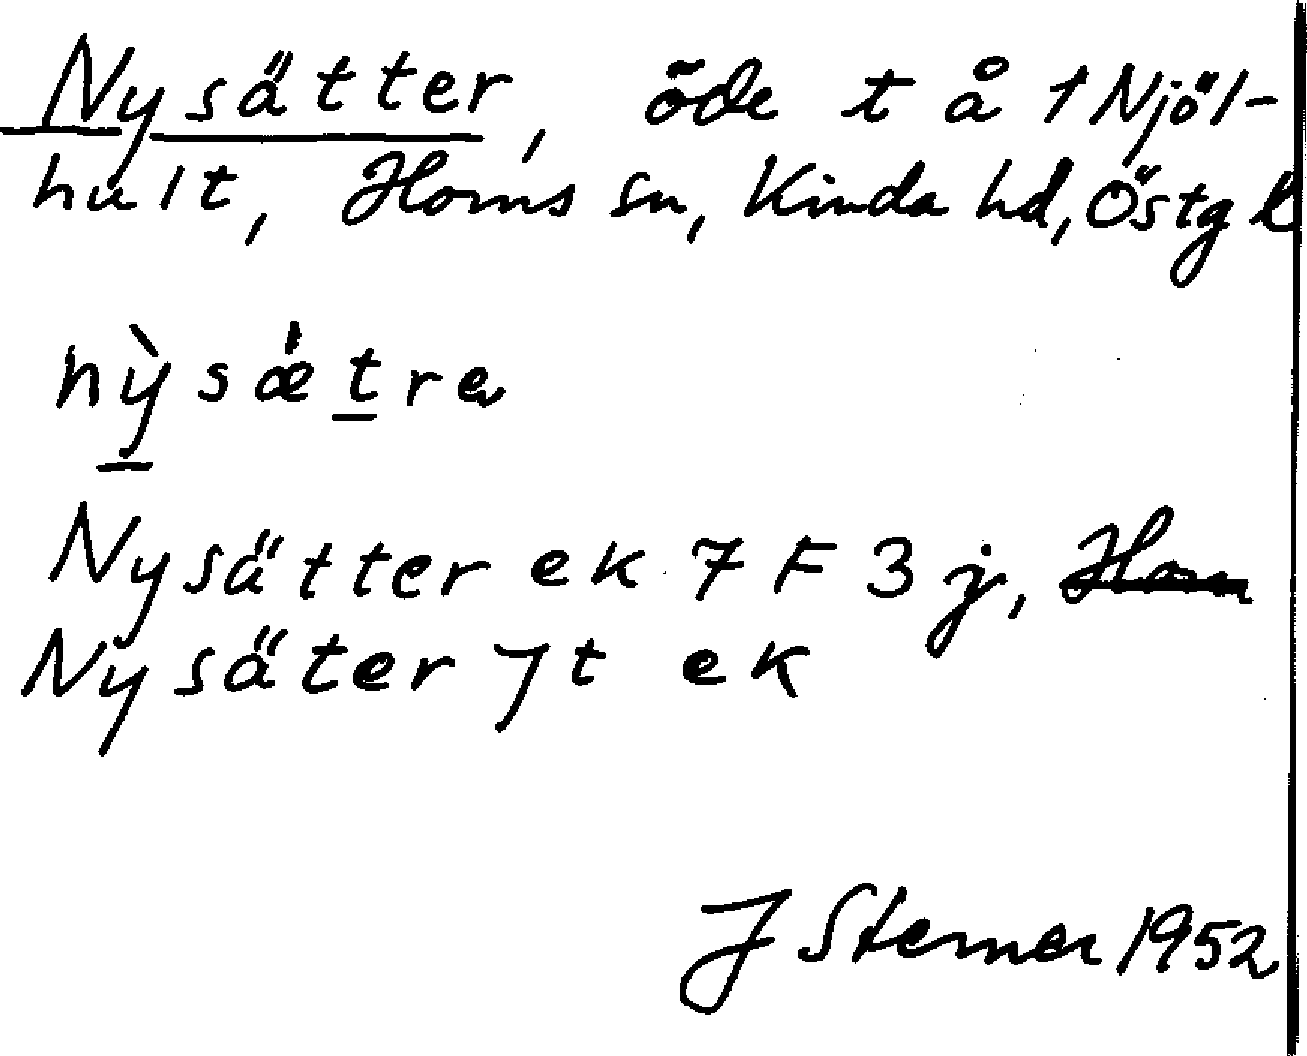 Nysätter, öde t å 1 Njöl-
hult, Horns sn, Kinda hd, Östg l
nỳsǽtra
Nysätter ek 7 F 3 j, Horn
Nysäter Jt ek
J Sterner 1952